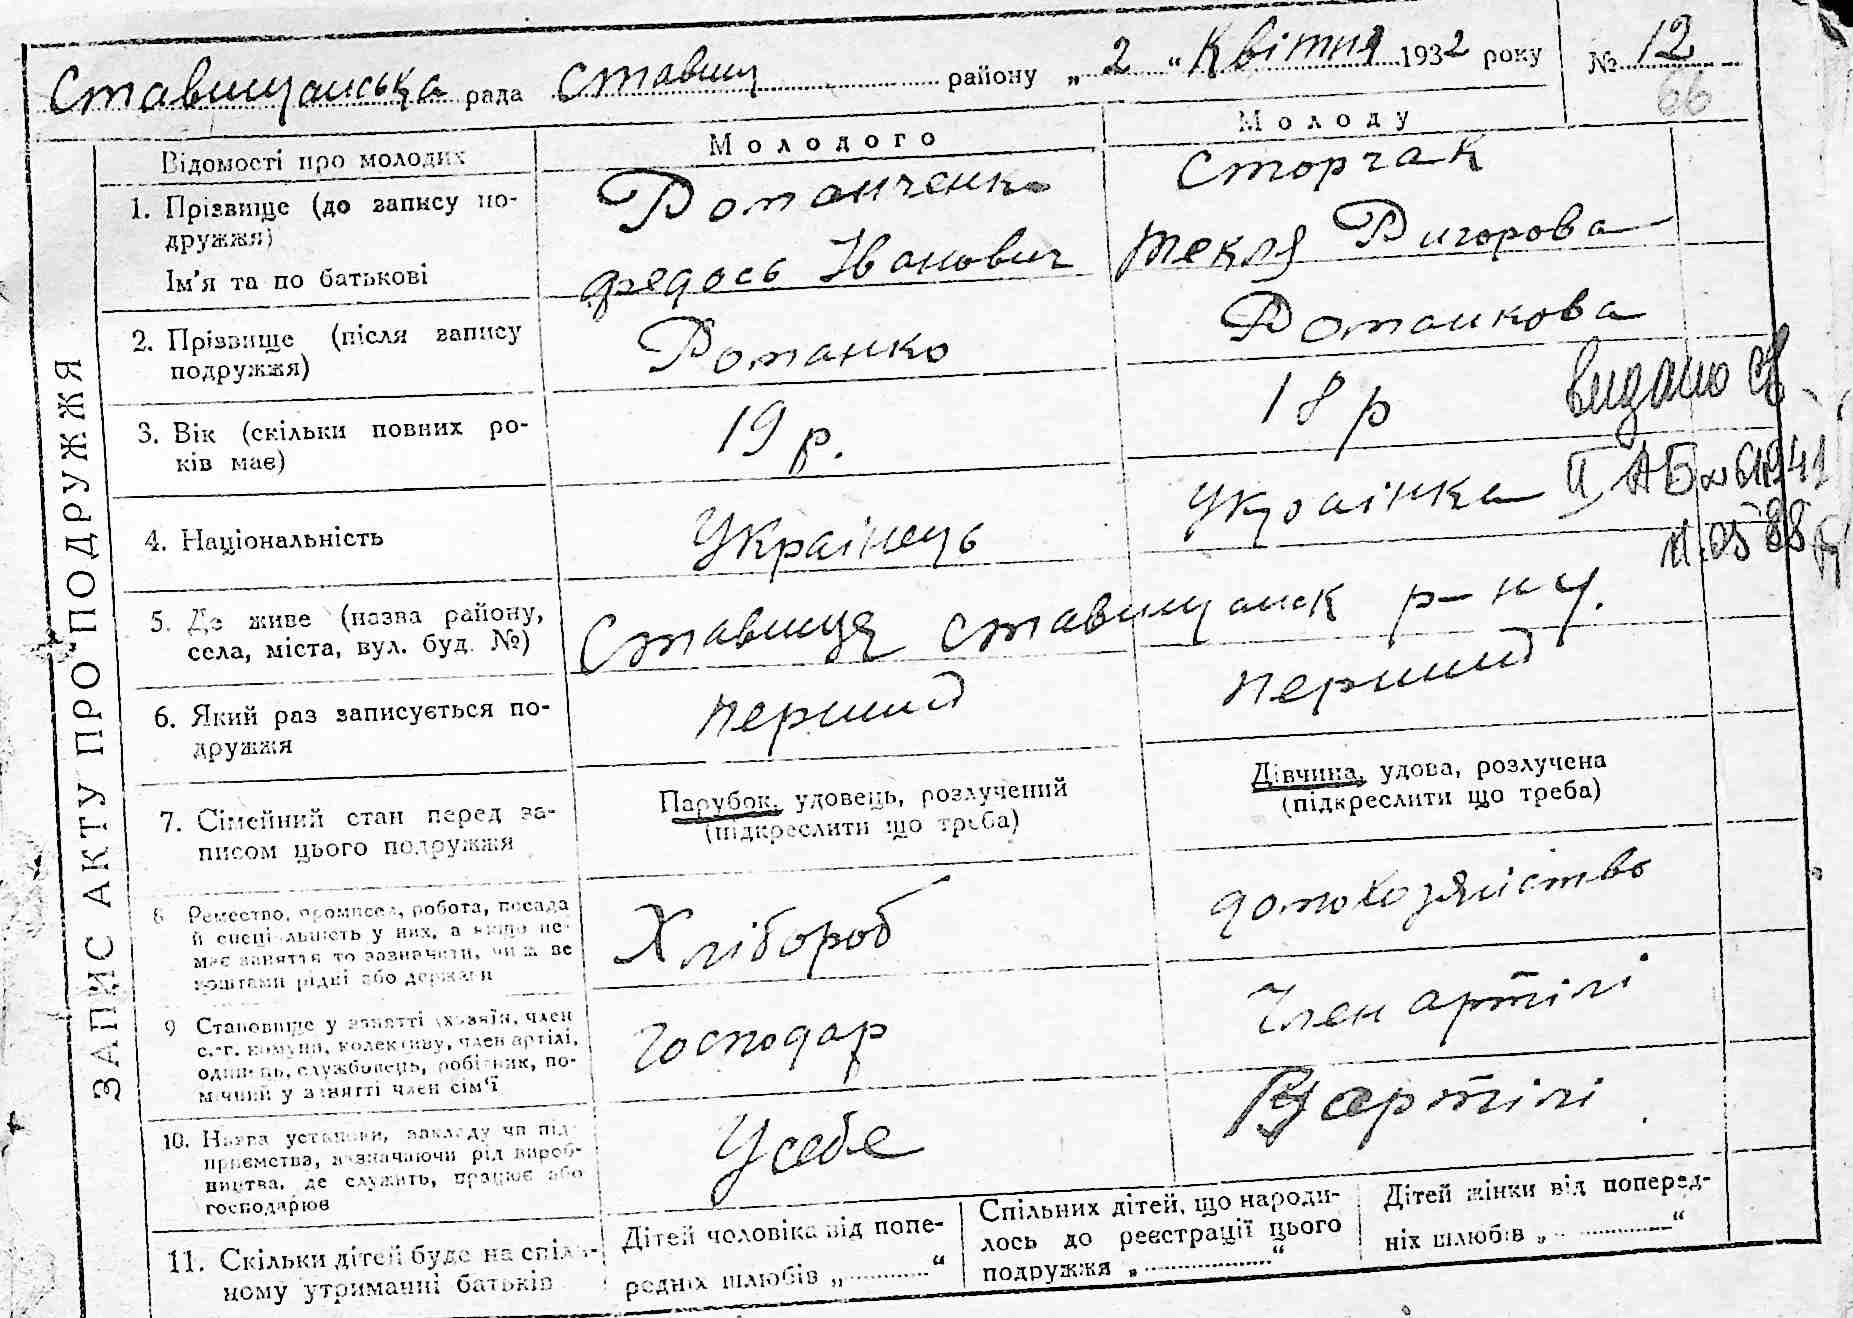 Ставищанська рада Ставищ району „ 2 " Квітня 1932 року № 12
66
ЗАПИС АКТУ ПРО ПОДРУЖЖЯ
Відомості про молодих
Молодого
Молоду
1. Прізвище (до запису по-
дружжя)
Ім'я та по батькові
Романченко
Федось Іванович
Сторчак
Текля Григорова
2. Прізвище (після запису
подружжя)
Романко
Романкова
3. Вік (скільки повних ро-
ків має)
19 р.
18 р
видано
4. Національність
Українець
Українка
II АБ №
11.05 88
5. Де живе (назва району,
села, міста, вул. буд. №)
Ставище ставищанск р-ну.
6. Який раз записується по-
дружжя
перший
перший
7. Сімейний стан перед за-
писом цього подружжя
Парубок, удовець, розлучений
(підкреслити що треба)
Дівчина, удова, розлучена
(підкреслити що треба)
8 Ремество, промисел, робота, посада
й спеціальність у них, а якщо не-
має заняття то зазначити, чи ж ве
коштами рідні або держави
Хлібороб
домохозяйство
9 Становище у занятті (хазяїн, член
с.-г. комуни, колективу, член артілі,
одинець, службовець, робітник, по-
мічний у занятті член сім'ї
Господар
Член артілі
10. Назва установи, закладу чи під-
приємства, зазначаючи рід вироб-
ництва, де служить, працює або
господарює
У себе
В артілі
11. Скільки дітей буде на спіль-
ному утриманні батьків
Дітей чоловіка від попе-
редніх шлюбів „ "
Спільних дітей, що народи-
лось до реєстрації цього
подружжя „ "
Дітей жінки від поперед-
ніх шлюбів „ "